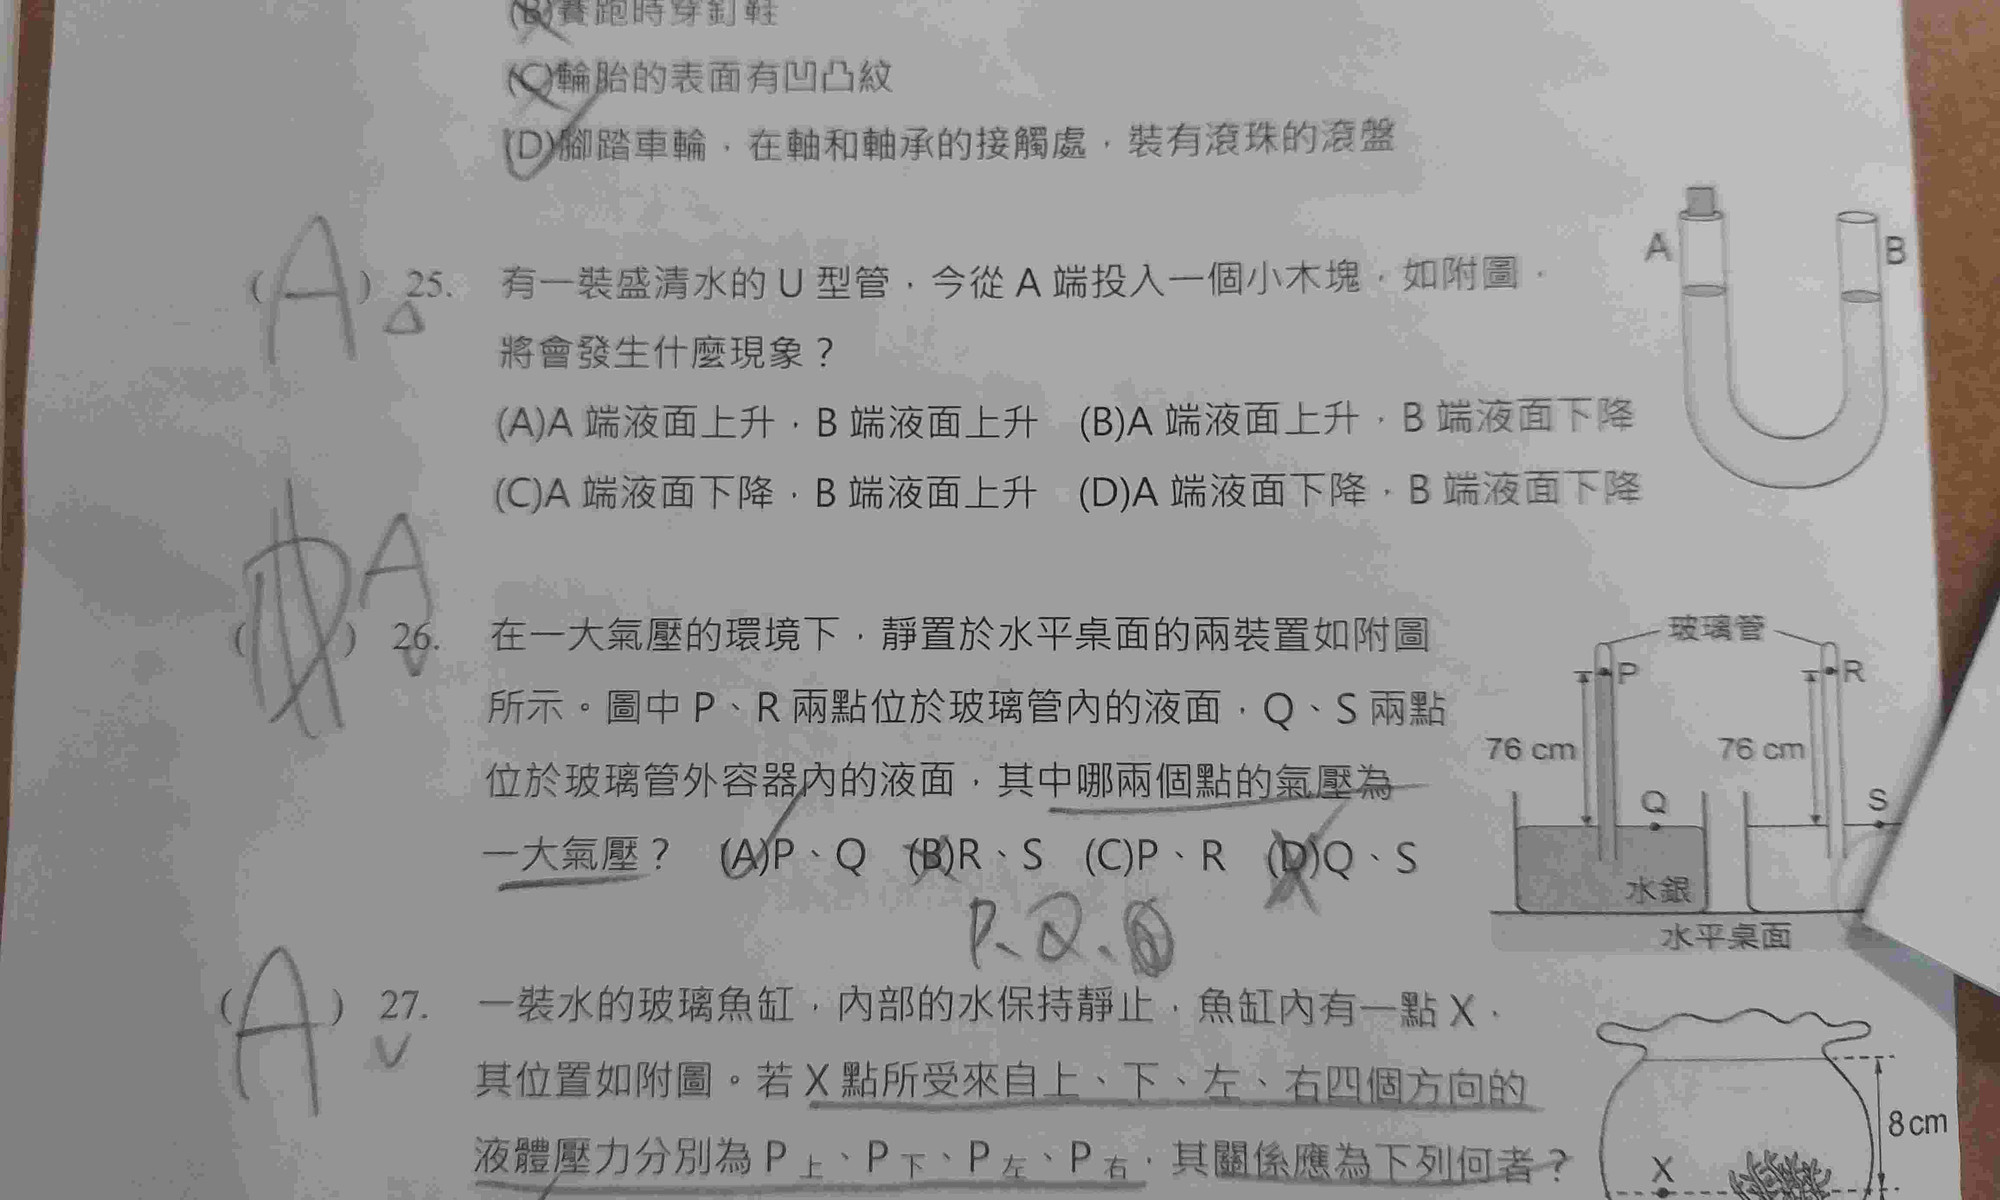 (B)賽跑時穿釘鞋
(C)輪胎的表面有凹凸紋
(D)腳踏車輪，在軸和軸承的接觸處，裝有滾珠的滾盤
(A) 25. 有一裝盛清水的 U 型管，今從 A 端投入一個小木塊，如附圖，
將會發生什麼現象？
(A)A 端液面上升，B 端液面上升 (B)A 端液面上升，B 端液面下降
(C)A 端液面下降，B 端液面上升 (D)A 端液面下降，B 端液面下降
A
B
A
( ) 26. 在一大氣壓的環境下，靜置於水平桌面的兩裝置如附圖
所示。圖中 P、R 兩點位於玻璃管內的液面，Q、S 兩點
位於玻璃管外容器內的液面，其中哪兩個點的氣壓為
一大氣壓？ (A)P、Q (B)R、S (C)P、R (D)Q、S
P、Q、
玻璃管
P
R
76 cm
76 cm
Q
S
水銀
水平桌面
(A) 27. 一裝水的玻璃魚缸，內部的水保持靜止，魚缸內有一點 X，
其位置如附圖。若 X 點所受來自上、下、左、右四個方向的
液體壓力分別為 P 上、P 下、P 左、P 右，其關係應為下列何者？
8 cm
X